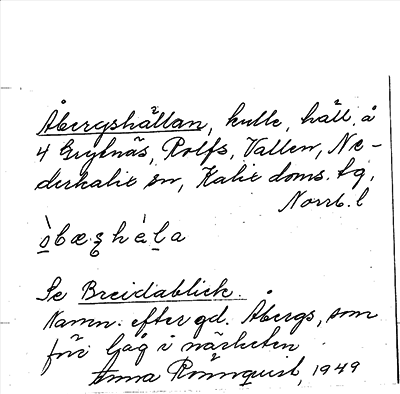 Åbergshällan, kulle, häll, å
4 Grytnäs, Rolfs, Vallen, Ne-
derkalix sn, Kalix doms. tg,
Norrb. l
òbæʒhàla
Se Breidablick.
Namn. efter gd. Åbergs, som
förr låg i närheten
Anna Rönnquist, 1949